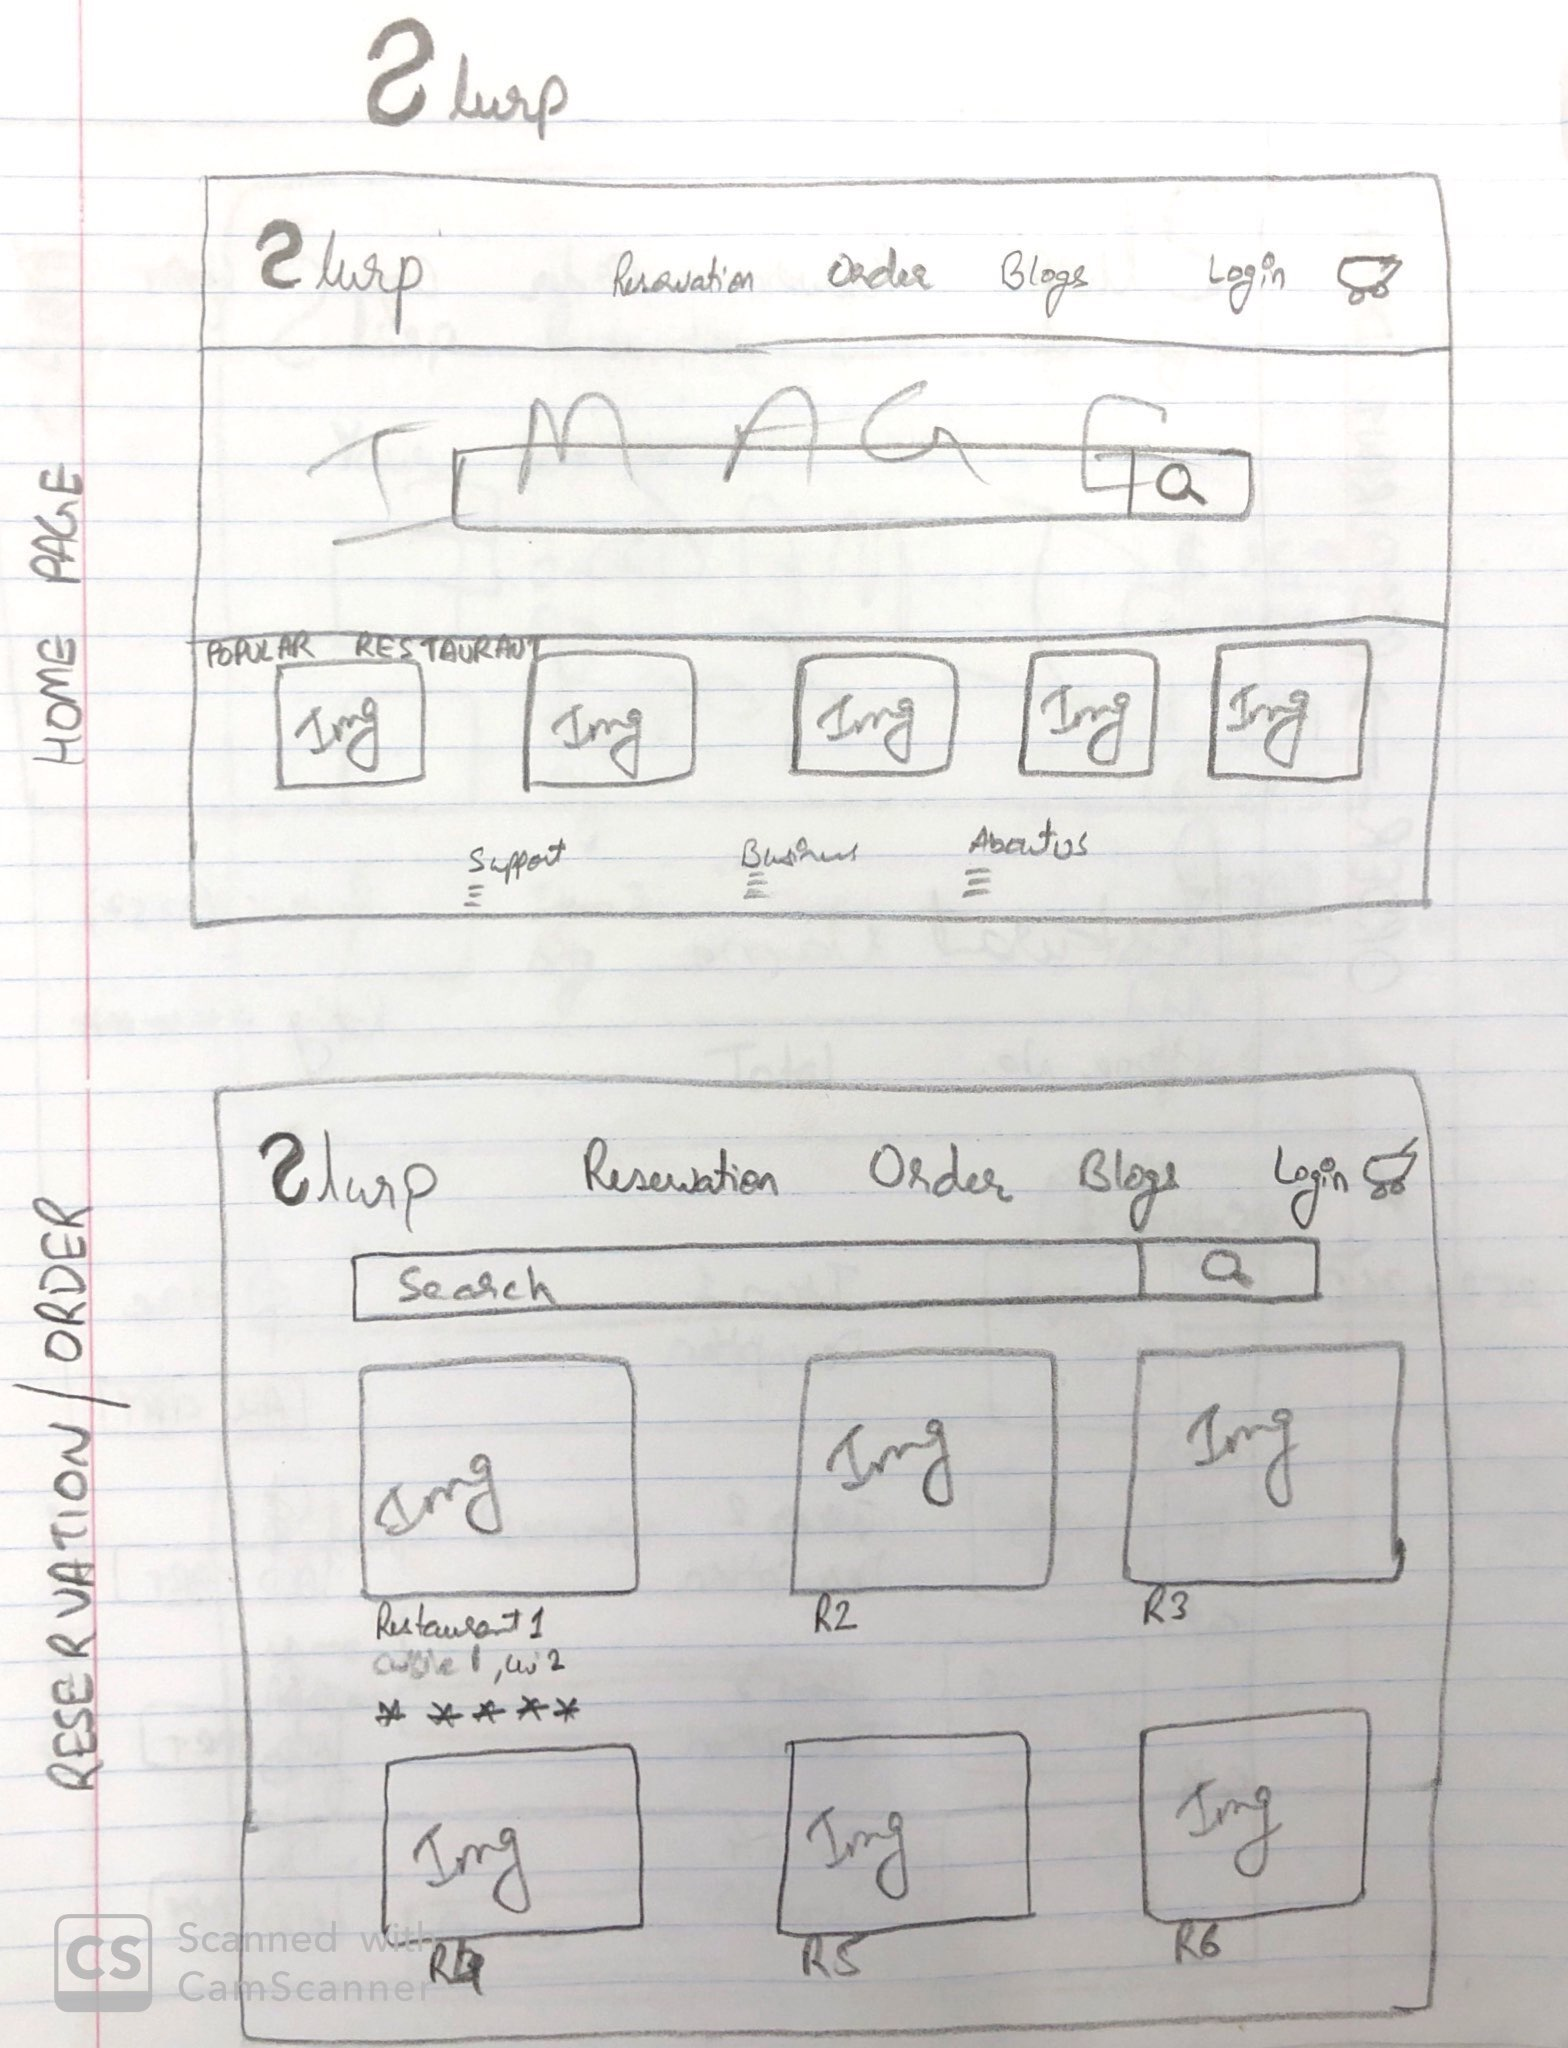 Slurp
HOME PAGE
Slurp Reservation Order Blogs Login
IMAGE
POPULAR RESTAURANT
Img Img Img Img Img
Support Business About us
RESERVATION/ORDER
Slurp Reservation Order Blogs Login
Search
Img Img Img
Restaurant 1 R2 R3
1, cui 2
* * * * *
Img Img Img
R4 R5 R6
CS Scanned with
CamScanner